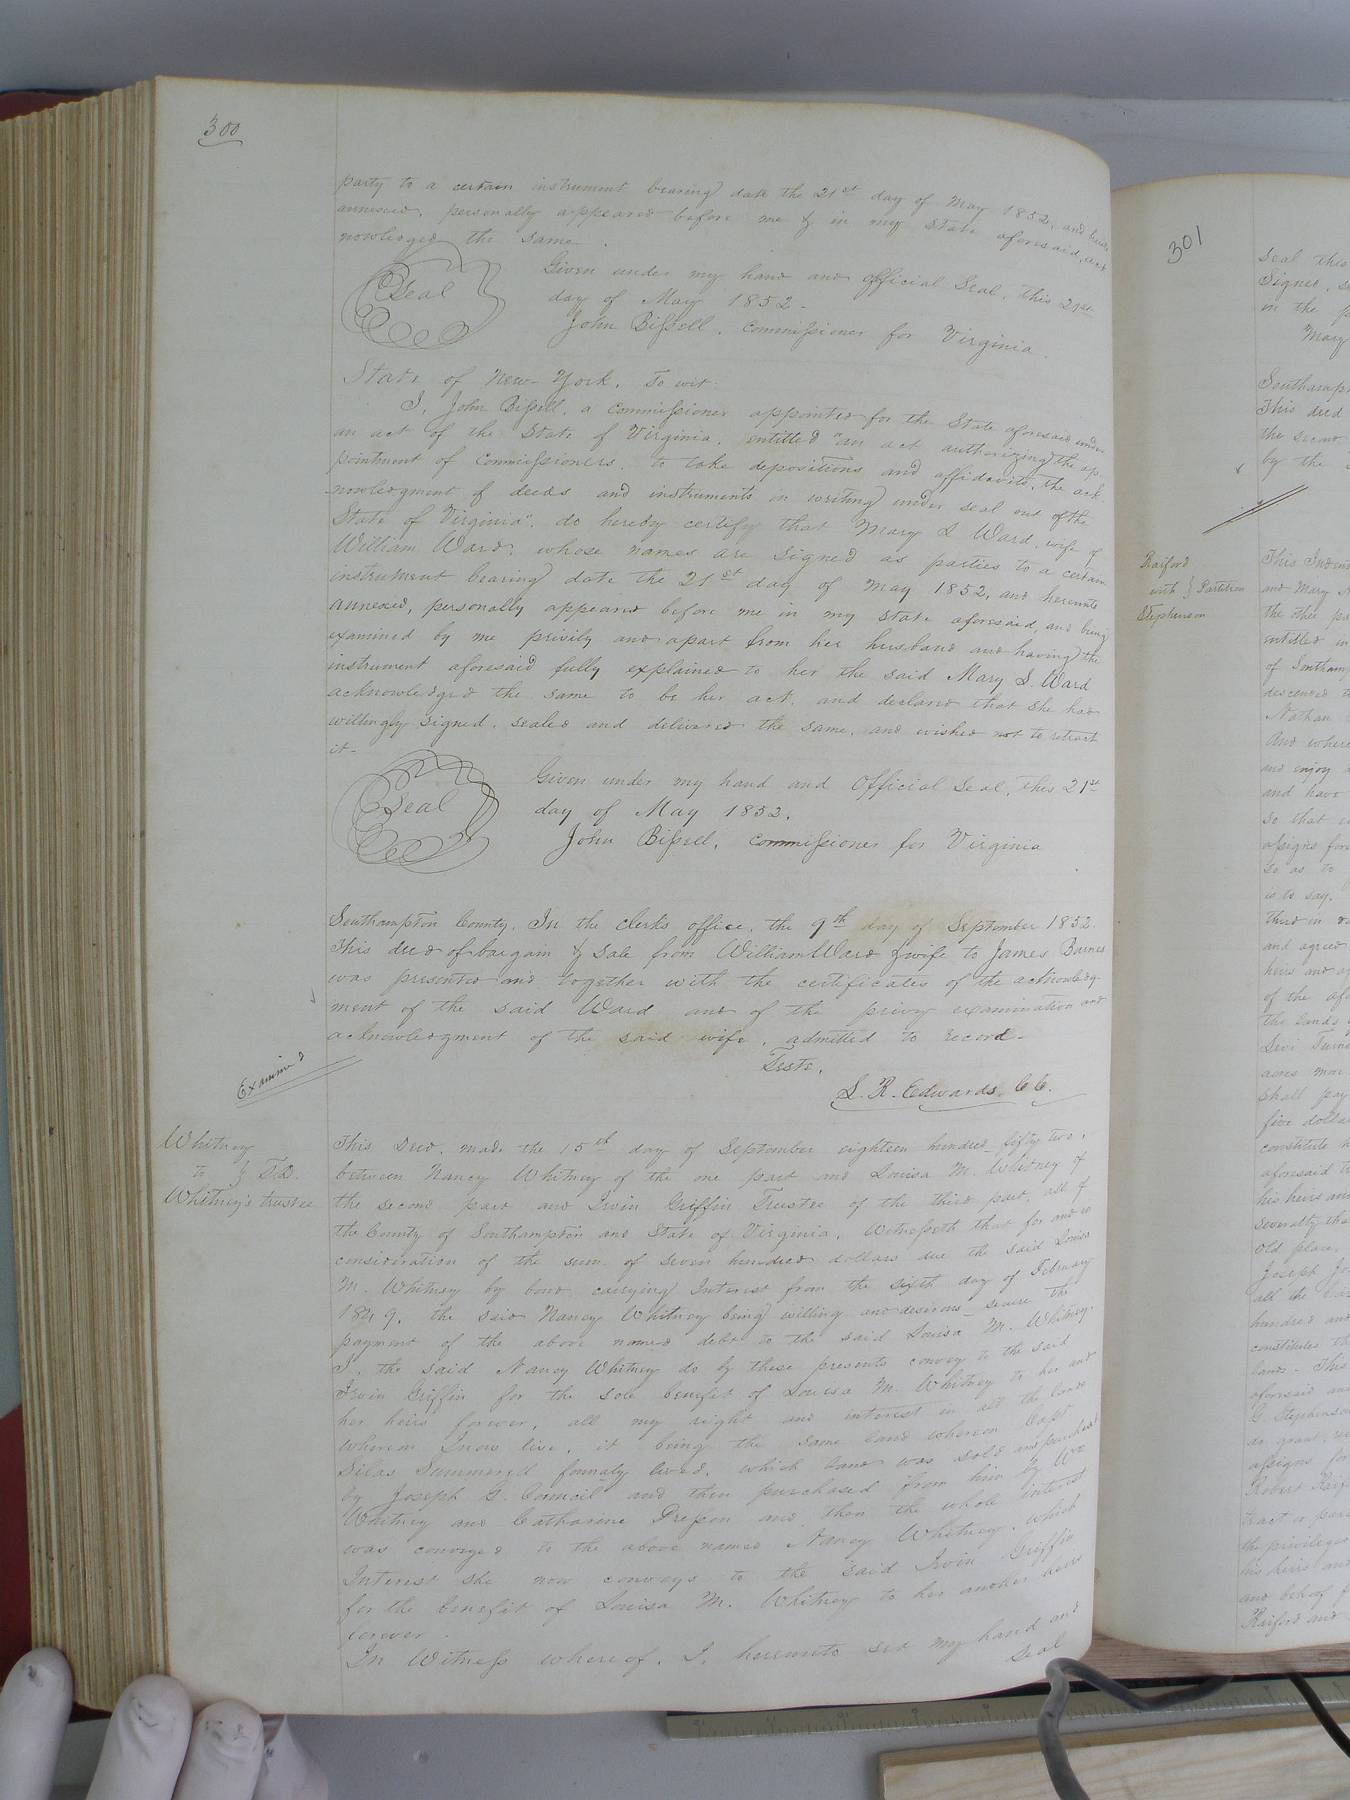 300
party to a certain instrument bearing date the 21st day of May 1852, and
annexed, personally appeared before me & in my State aforesaid, ack
nowledged the same.
Seal
Given under my hand and official Seal, this 21st
day of May 1852.
John Bissell, Commissioner for Virginia.
State of New-York, To wit:
I, John Bissell, a commissioner appointed for the State aforesaid under
an act of the State of Virginia, entitled "an act authorizing the ap-
pointment of Commissioners, to take depositions and affidavits, the ack-
nowledgment of deeds and instruments in writing under seal out of the
State of Virginia", do hereby certify that Mary S Ward, wife of
William Ward, whose names are signed as parties to a certain
instrument bearing date the 21st day of May 1852, and hereunto
annexed, personally appeared before me in my State aforesaid, and being
examined by me privily and apart from her husband and having the
instrument aforesaid fully explained to her the said Mary S. Ward
acknowledged the same to be her act, and declared that she had
willingly signed, sealed and delivered the same, and wished not to retract
it-
Seal
Given under my hand and Official Seal, this 21st
day of May 1852.
John Bissell, commissioner for Virginia
Southampton County, In the clerk's office, the 9th day of September 1852.
This deed of bargain & sale from William Ward & wife to James Barnes
was presented and together with the certificates of the acknowledg-
ment of the said Ward and of the privy examination and
acknowledgment of the said wife, admitted to record-
Teste,
L. R. Edwards, CC.
Examined
Whitney
to } T.D.
Whitney's trustee
This Deed, made the 15th day of September eighteen hundred fifty two,
between Nancy Whitney of the one part and Louisa M. Whitney of
the second part and Irvin Griffin Trustee of the third part, all of
the County of Southampton and State of Virginia, Witnesseth that for and in
consideration of the sum of seven hundred dollars due the said Louisa
M. Whitney by bond, carrying Interest from the sixth day of February
1849, the said Nancy Whitney being willing and desirous secure the
payment of the above named debt to the said Louisa M. Whitney.
I, the said Nancy Whitney do by these presents convey to the said
Irvin Griffin for the sole benefit of Louisa M. Whitney to her and
her heirs forever, all my right and interest in all the land
wheron I now live, it being the same land whereon Capt
Silas Summerell formaly lived, which land was sold and purchased
by Joseph G. Council and then purchased from him by Wm
Whitney and Catharine and then the whole interest
was conveyed to the above named Nancy Whitney, which
Interest she now conveys to the said Irvin Griffin
for the benefit of Louisa M. Whitney to her and her heirs
forever.
In Witness whereof, I, hereunto set my hand and
seal
301
seal this
Signed, s
in the p
Mary
Southamp
This deed
the
by the
Raiford
with } Partition
Stephenson
This Inden
and Mary
the other pa
entitled in
of Southam
descended t
Nathan
And where
and enjoy
and have
so that
assigns for
so as to
is to say,
third in
and agreed
heirs and a
of the afo
the lands
Levi Turn
acres mor
shall pay
five dolla
constitute
aforesaid t
his heirs and
severalty tha
old place,
Joseph Jo
all the
hundred and
constitutes th
land - This
aforesaid and
G. Stephenson
do grant,
assigns for
Robert Raif
tract or parc
the privileges
his heirs and
and behoof f
Raiford and